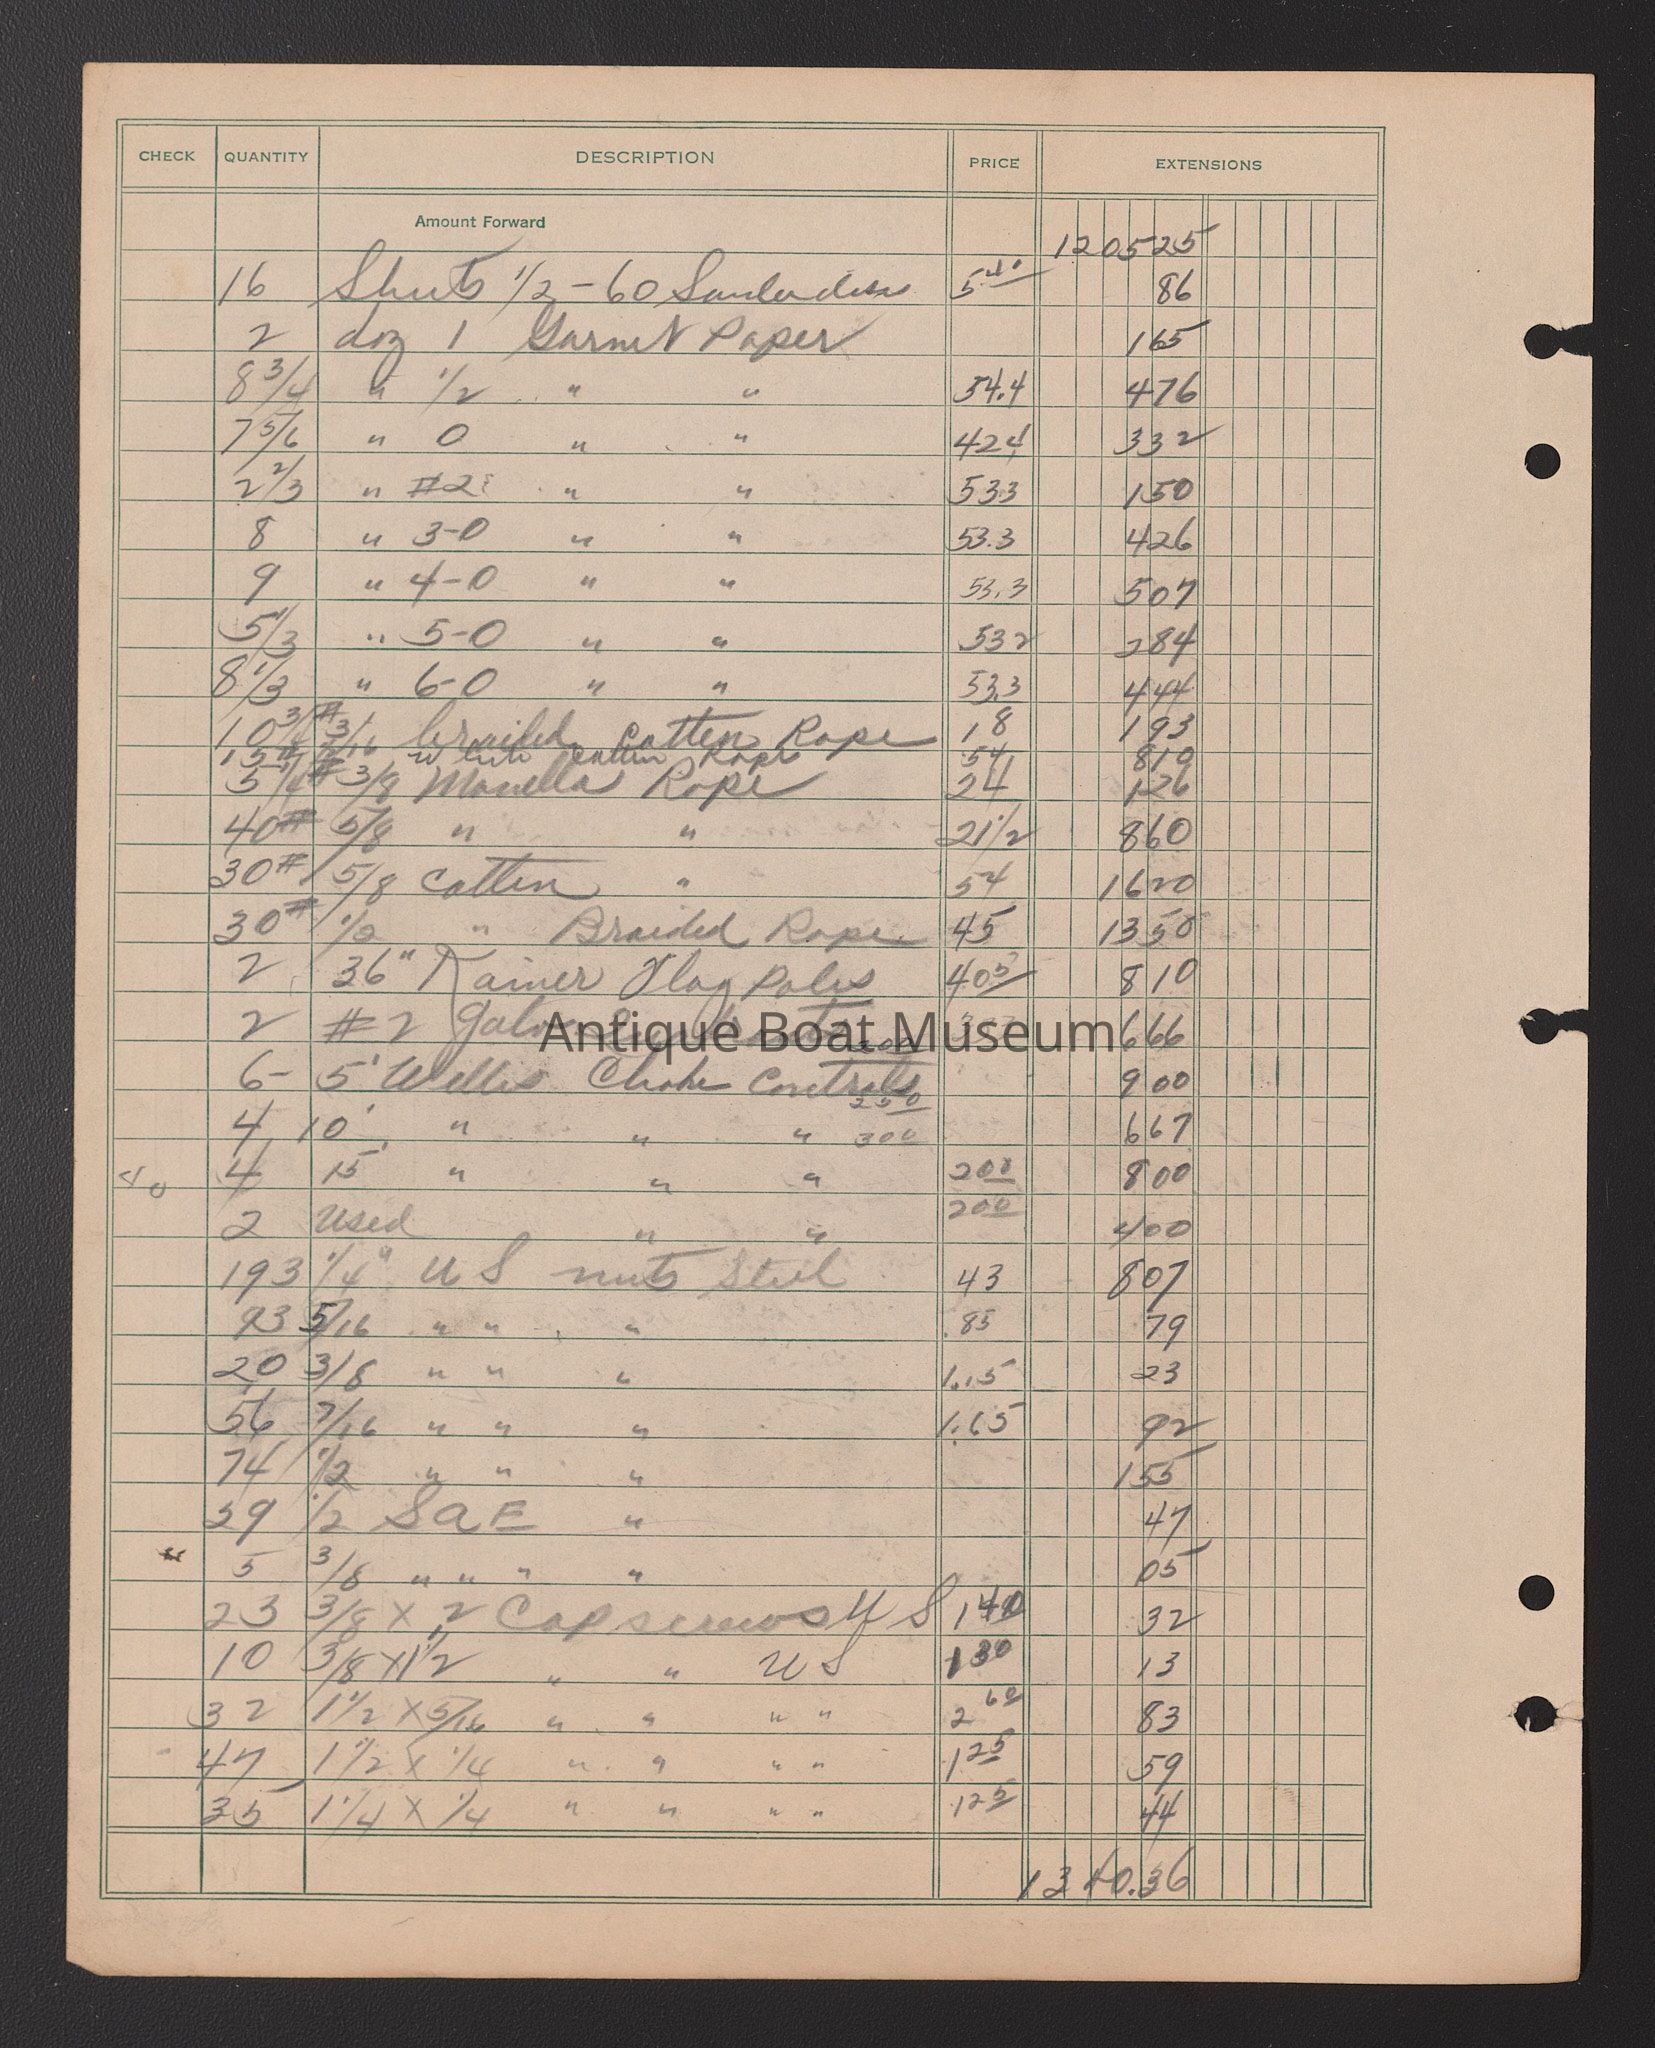 CHECK QUANTITY DESCRIPTION PRICE EXTENSIONS
Amount Forward 120525
16 Sheets 1/2-60 5.40 86
2 doz 1 Garnet Paper 165
8 3/4 " 1/2 " " 54.4 476
7 5/6 " 0 " " 424 332
2 2/3 " #2 " " 533 150
8 " 3-0 " " 53.3 426
9 " 4-0 " " 53.3 507
5 1/3 " 5-0 " " 532 284
8 1/3 " 6-0 " " 53.3 444
10 3/4 # 3/16 braided cotten Rope 18 193
15 # white cotten Rope 54 810
5 1/4 # 3/8 Manella Rope 24 126
40 # 5/8 " " 21 1/2 860
30 # 5/8 cotten " 54 1620
30 # 1/2 " Braided Rope 45 1350
2 36" Rainer Flag Poles 405 810
2 #2 666
Antique Boat Museum
6- 5' Wellis Choke Controls 900
250
4 10' " " " 300 667
40 4 15' " " " 200 800
2 Used " " 200 400
193 1/4" U S nuts Steel 43 807
93 5/16 " " " .85 79
20 3/8 " " " 1.15 23
56 7/16 " " " 1.65 92
74 1/2 " " " 155
39 1/2 SAE " 47
" 5 3/8 " " " " 05
23 3/8 x 2 Cap screws U S 140 32
10 3/8 x 1 1/2 " " U S 130 13
32 1 1/2 x 5/16 " " " " 2 60 83
47 1 1/2 x 1/4 " " " " 1 25 59
35 1 1/4 x 1/4 " " " " 125 44
1340.36